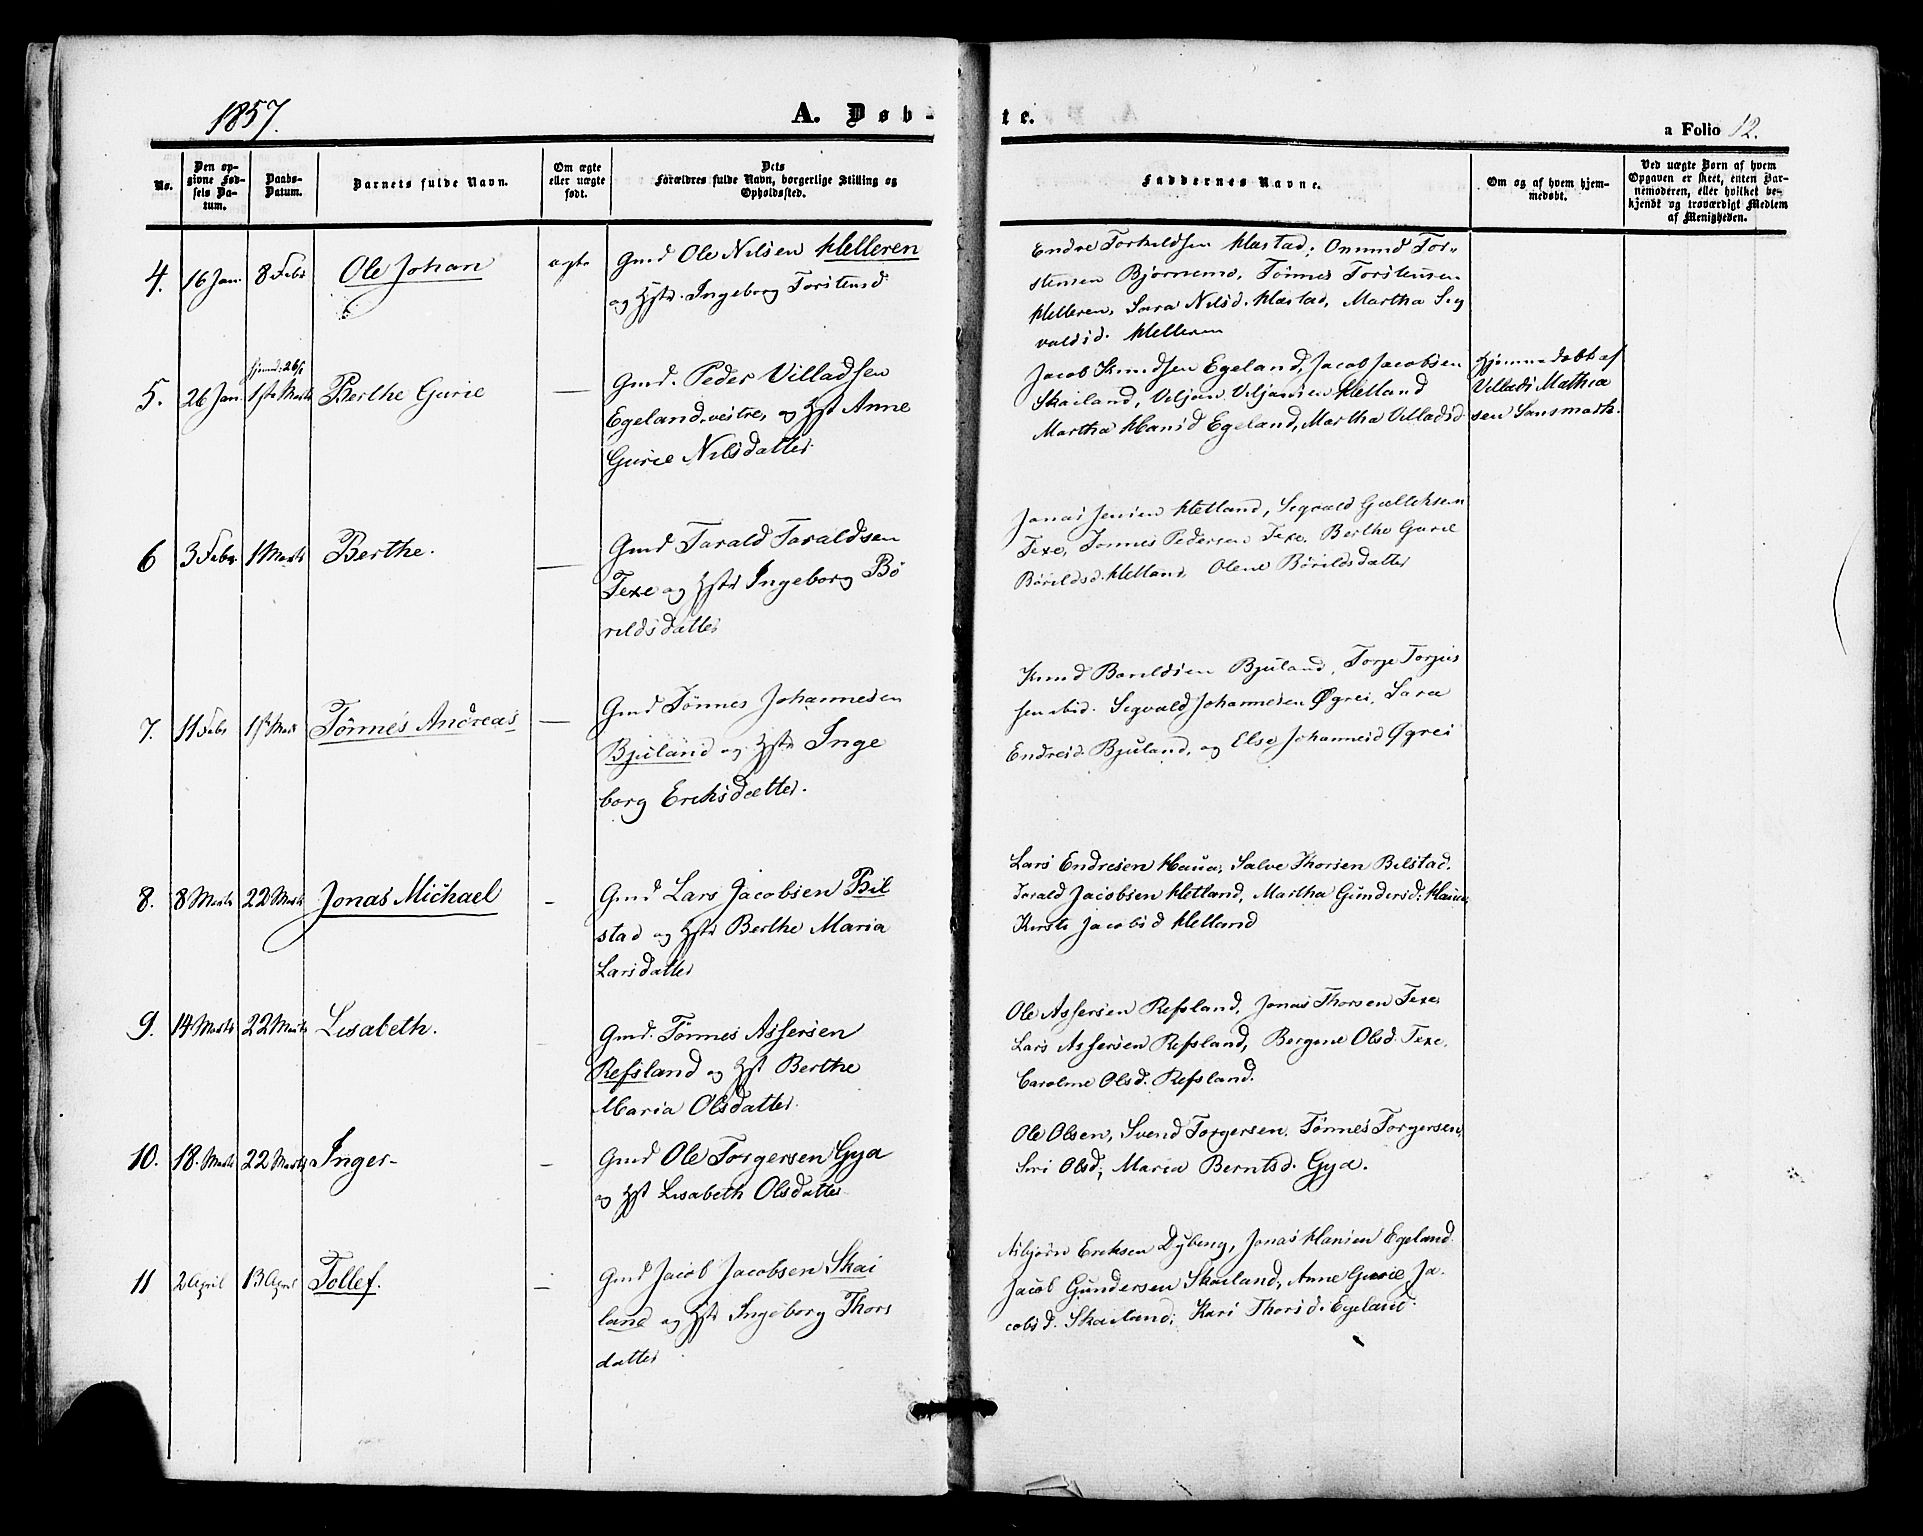 1857.
A. Døb-
te.
a Folio 12.
No.
Den op-
givne Fød-
sels Da-
tum.
Daabs-
Datum.
Barnets fulde Navn.
Om ægte
eller uægte
født.
Dets
Forældres fulde Navn, borgerlige Stilling og
Opholdssted.
Faddernes Navne.
Om og af hvem hjem-
medøbt.
Ved uægte Børn af hvem
Opgaven er skeet, enten Bar-
nemoderen, eller hvilket be-
kjendt og troværdigt Medlem
af Menigheden.
4. 16 Jan 8 Febr Ole Johan ægte
Gmd Ole Nilsen Helleren
og Hstr. Ingeborg Torstensd
Endre Torkeldsen Hastad, Onund Tor-
stensen Bjornemo, Tönnes Torstensen
Helleren, Sara Nilsd. Hastad, Martha Sig
valdsd. Helleren
5. 26 Jan hjemd: 26/1
1ste Marts Berthe Gurie —
Gmd. Peder Villadsen
Egeland, vestre, og Hst Anne
Gurie Nilsdatter
Jacob Knudsen Egeland, Jacob Jacobsen
Skailand, Viljam Viljamsen Hetland
Martha Hansd Egeland, Martha Villadsd
Hjemmedøbt af
Villads Mathia
sen Sansmark.
6 3 Febr. 1 Marts Berthe. —
Gmd Tarald Taraldsen
Texe og Hstr Ingeborg Bö
rildsdatter
Jonas Jensen Hetland, Segvald Gulleksen
Texe, Tonnes Pedersen Texe, Berthe Gurie
Börildsd. Hetland, Olene Börildsdatter
7. 11 Febr 1ste Marts Tönnes Andreas —
Gmd Tönnes Johannesen
Bjuland og Hstr Inge
borg Eriksdatter.
Knud Boreldsen Bjuland, Torje Torjus
sen ibid. Segvald Johannesen Øgrei, Sara
Endresd. Bjuland, og Else Johannesd Øgrei
8. 8 Marts 22 Marts Jonas Michael -
Gmd Lars Jacobsen Bil
stad og Hstr Berthe Maria
Larsdatter
Lars Endresen Haua, Salve Thorsen Bilstad.
Tarald Jacobsen Hetland, Martha Gundersd: Haua
Kirsti Jacobsd Hetland
9. 14 Marts 22 Marts Lisabeth. -
Gmd. Tönnes Assersen
Refsland og Hst Berthe
Maria Olsdatter.
Ole Assersen Refsland, Jonas Thorsen Texe
Lars Assersen Refsland, Bergene Olsd. Texe.
Caroline Olsd. Refsland.
10. 18. Marts 22 Marts Inger- -
Gmd Ole Torgersen Gya
og Hst Lisabeth Olsdatter
Ole Olsen, Svend Torgersen, Tönnes Torgersen,
Siri Olsd; Maria Berntsd. Gya.
11 2 April 13 April Tollef. -
Gmd Jacob Jacobsen Skai
land og Hstr Ingeborg Thors
datter
Asbjörn Eriksen Dyberg, Jonas Hansen Egeland.
Jacob Gundersen Skailand, Anne Gurie Ja-
cobsd. Skailand; Kari Thorsd. Egeland.